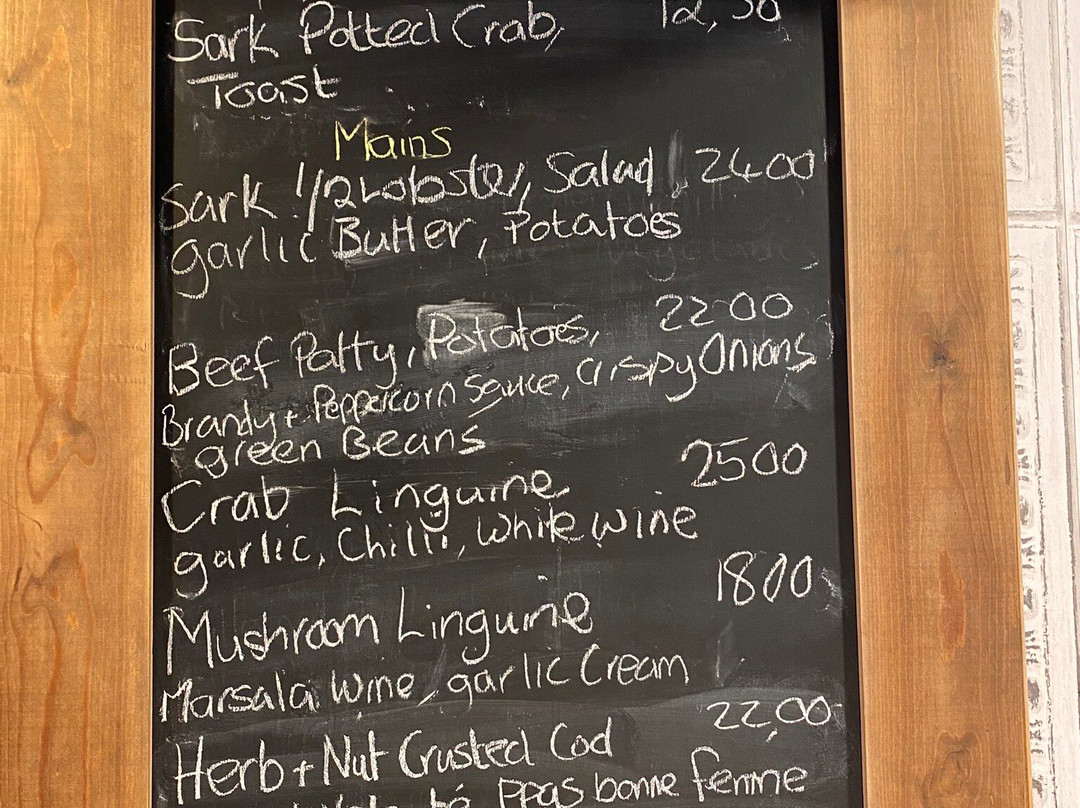 Sark Potted Crab, 12,50
Toast
Mains
Sark 1/2 Lobster, Salad 2400
garlic Butter, Potatoes
2200
Beef Patty, Potatoes,
Brandy + Peppercorn Sauce, Crispy Onions
green Beans
2500
Crab Linguine
garlic, Chilli, White wine
1800
Mushroom Linguine
Marsala Wine, garlic Cream
22,00
Herb + Nut Crusted Cod
PPas bonne femme